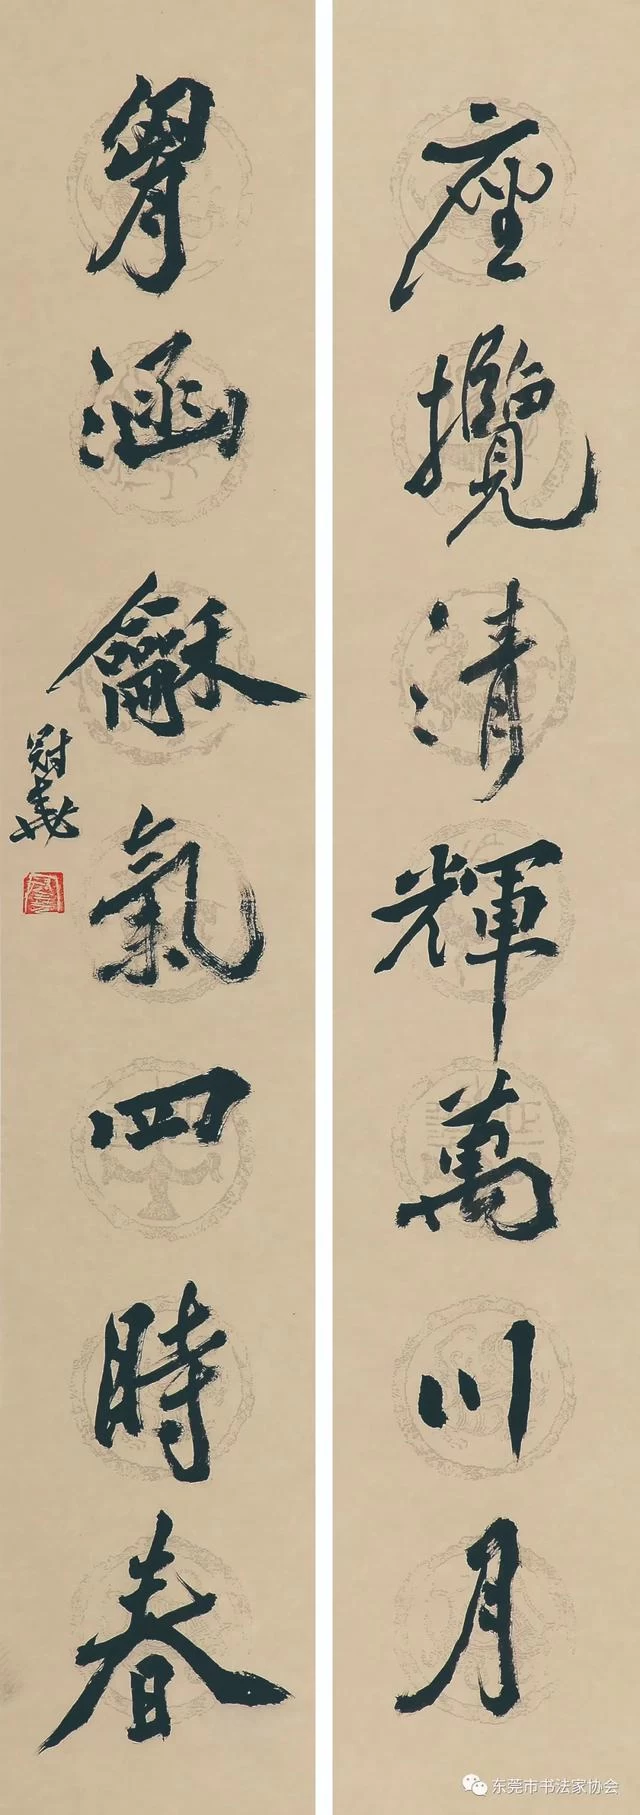 座攬清輝萬川月
胷涵龢氣四時春
冠堯
东莞市书法家协会